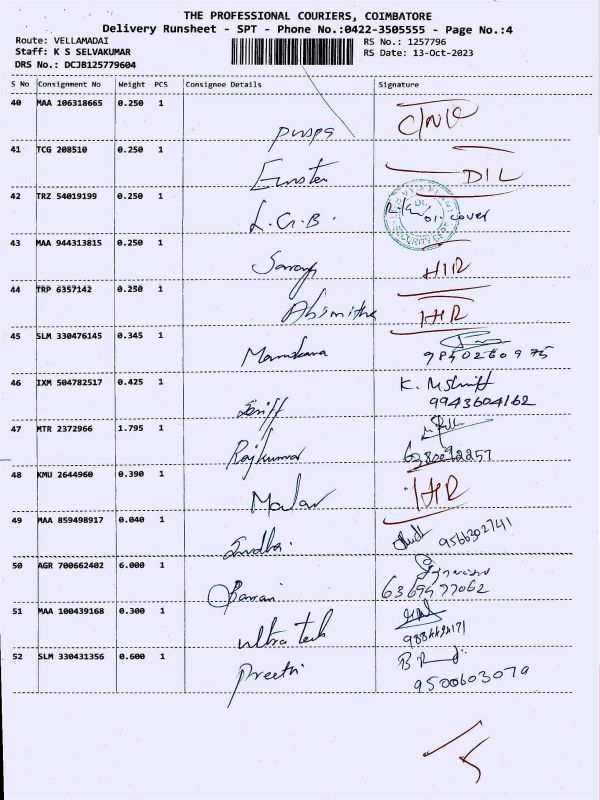 THE PROFESSIONAL COURIERS, COIMBATORE
Delivery Runsheet - SPT - Phone No.:0422-3505555 - Page No.:4
Route: VELLAMADAI
RS No.: 1257796
Staff: K S SELVAKUMAR
RS Date: 13-Oct-2023
DRS No.: DCJB125779604
S No Consignment No Weight PCS Consignee Details Signature
40 MAA 106318665 0.250 1
41 TCG 208510 0.250 1
DIL
42 TRZ 54019199 0.250 1
L.G.B.
cover
43 MAA 944313815 0.250 1
44 TRP 6357142 0.250 1
Absmitha
45 SLM 330476145 0.345 1
46 IXM 504782517 0.425 1
Seriff K.
9943604162
47 MTR 2372966 1.795 1
Rajkumar
48 KMU 2644960 0.390 1
Malar
49 MAA 859498917 0.040 1
Sudha. 9566302741
50 AGR 700662402 6.000 1
6369477062
51 MAA 100439168 0.300 1
ultra tech
52 SLM 330431356 0.600 1
Preethi
9500603079